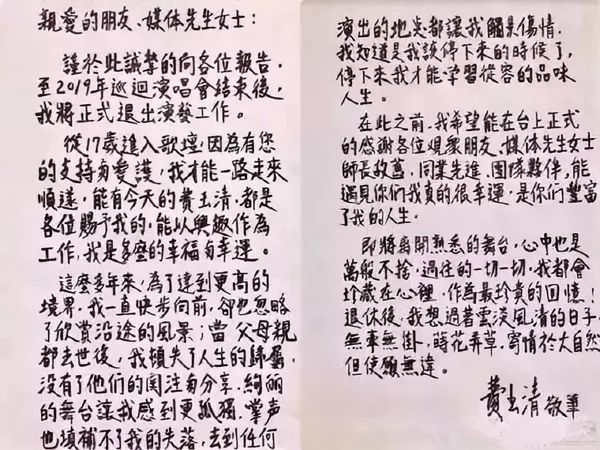 親愛的朋友、媒体先生女士：
謹於此誠摯的向各位報告，
至2019年巡迴演唱會結束後，
我將正式退出演藝工作。
從17歲進入歌壇，因為有您
的支持与愛護，我才能一路走來
順遂，能有今天的費玉清，都是
各位賜予我的，能以興趣作為
工作，我是多麼的幸福与幸運。
這麼多年來，為了達到更高的
境界，我一直快步向前，卻也忽略
了欣賞沿途的風景；當父母親
都去世後，我頓失了人生的歸屬，
沒有了他們的関注与分享，絢麗
的舞台讓我感到更孤獨，掌声
也填補不了我的失落，去到任何
演出的地点都讓我觸景傷情，
我知道是我該停下來的時候了，
停下來我才能学習從容的品味
人生。
在此之前，我希望能在台上正式
的感谢各位观衆朋友、媒体先生女士
師長故舊、同業先進、团隊夥伴，能
遇見你们我真的很幸運，是你们豐富
了我的人生。
即將离開熟悉的舞台，心中也是
萬般不捨，過往的一切一切，我都會
珍藏在心裡，作為最珍貴的回憶！
退休後，我想過著雲淡風清的日子，
無牽無掛，蒔花弄草，寄情於大自然
但使願無違。
費玉清 敬筆